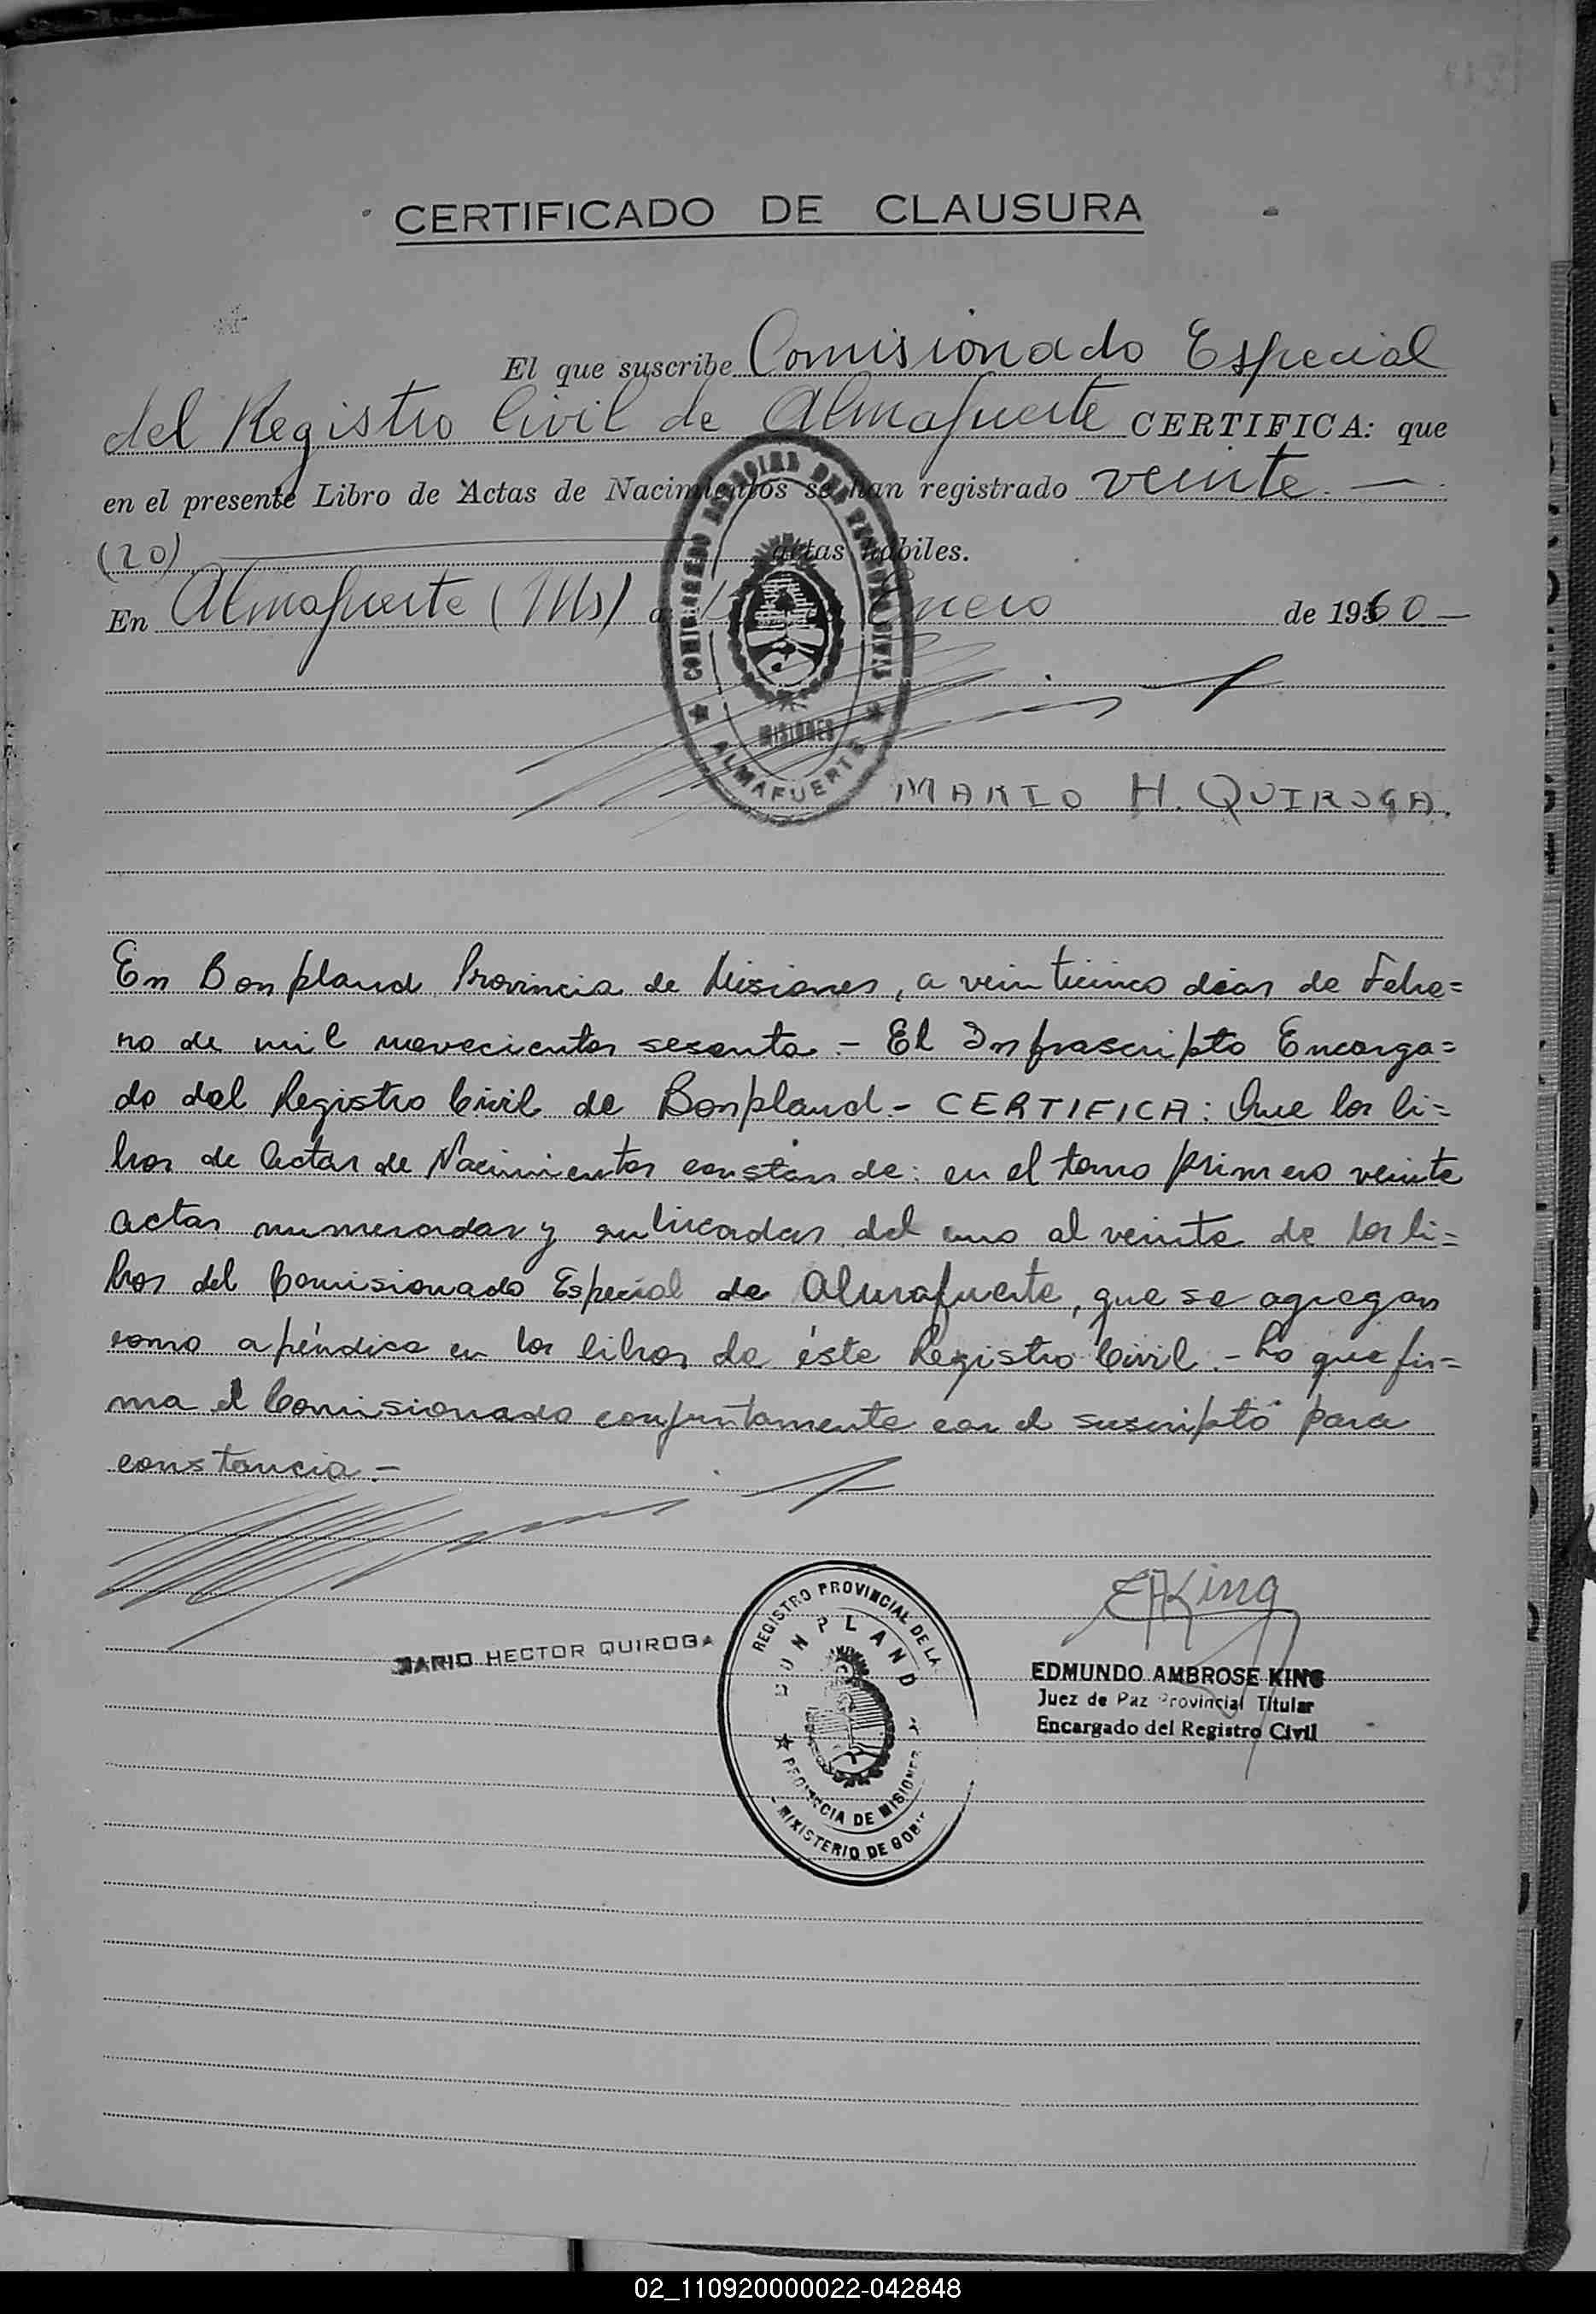 CERTIFICADO DE CLAUSURA
El que suscribe Comisionado Especial
del Registro Civil de Almafuerte CERTIFICA: que
en el presente Libro de Actas de Nacimientos se han registrado veinte. —
(20) actas hábiles.
En Almafuerte (Mls) a Enero de 1960 —
MISIONES
ALMAFUERTE
MARIO H. QUIROGA.
En Bonpland Provincia de Misiones, a veinticinco dias de Febre=
ro de mil novecientos sesenta.- El Infrascripto Encarga=
do del Registro Civil de Bonpland.- CERTIFICA: Que los li=
bros de Actas de Nacimientos constan de: en el tomo primero veinte
actas numeradas y rubricadas del uno al veinte de los li=
bros del Comisionado Especial de Almafuerte, que se agregan
como apéndice en los libros de éste Registro Civil.- Lo que fir=
ma el Comisionado conjuntamente con el suscripto para
constancia.-
EAKing
MARIO HECTOR QUIROGA
REGISTRO PROVINCIAL DE LA
BONPLAND
PROVINCIA DE MISIONES
MINISTERIO DE GOB
EDMUNDO AMBROSE KING
Juez de Paz Provincial Titular
Encargado del Registro Civil
02_110920000022-042848